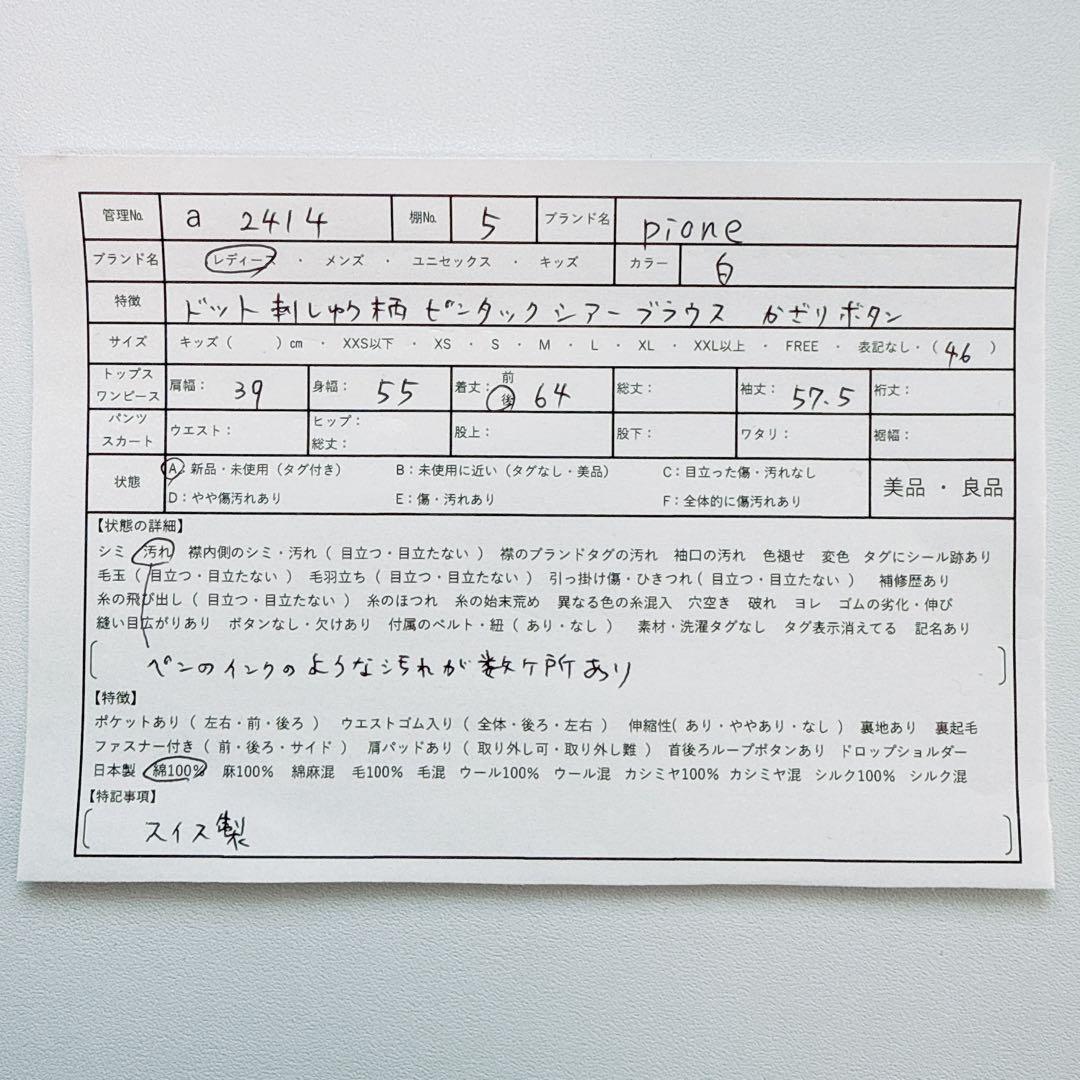 管理No. a 2414 棚No. 5 ブランド名 pione
ブランド名 レディース ・ メンズ ・ ユニセックス ・ キッズ カラー 白
特徴 ドット刺しゅう柄 ピンタック シアーブラウス かざりボタン
サイズ キッズ( )cm ・ XXS以下 ・ XS ・ S ・ M ・ L ・ XL ・ XXL以上 ・ FREE ・ 表記なし・( 46 )
トップス ワンピース 肩幅: 39 身幅: 55 着丈: 前 後 64 総丈: 袖丈: 57.5 裄丈:
パンツ スカート ウエスト: ヒップ: 総丈: 股上: 股下: ワタリ: 裾幅:
状態 A:新品・未使用(タグ付き) B:未使用に近い(タグなし・美品) C:目立った傷・汚れなし 美品 ・ 良品
D:やや傷汚れあり E:傷・汚れあり F:全体的に傷汚れあり
【状態の詳細】
シミ 汚れ 襟内側のシミ・汚れ( 目立つ・目立たない ) 襟のブランドタグの汚れ 袖口の汚れ 色褪せ 変色 タグにシール跡あり
毛玉( 目立つ・目立たない ) 毛羽立ち( 目立つ・目立たない ) 引っ掛け傷・ひきつれ( 目立つ・目立たない ) 補修歴あり
糸の飛び出し( 目立つ・目立たない ) 糸のほつれ 糸の始末荒め 異なる色の糸混入 穴空き 破れ ヨレ ゴムの劣化・伸び
縫い目広がりあり ボタンなし・欠けあり 付属のベルト・紐( あり・なし ) 素材・洗濯タグなし タグ表示消えてる 記名あり
ペンのインクのような汚れが数ヶ所あり
【特徴】
ポケットあり( 左右・前・後ろ ) ウエストゴム入り( 全体・後ろ・左右 ) 伸縮性( あり・ややあり・なし ) 裏地あり 裏起毛
ファスナー付き( 前・後ろ・サイド ) 肩パッドあり( 取り外し可・取り外し難 ) 首後ろループボタンあり ドロップショルダー
日本製 綿100% 麻100% 綿麻混 毛100% 毛混 ウール100% ウール混 カシミヤ100% カシミヤ混 シルク100% シルク混
【特記事項】
スイス製